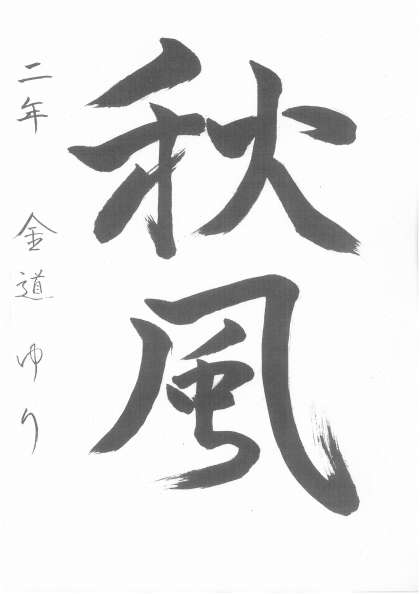 秋風
二年 金道ゆり